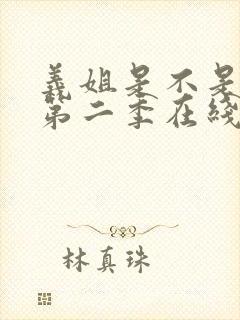 義姐是不是
第二季在綫
林真珠